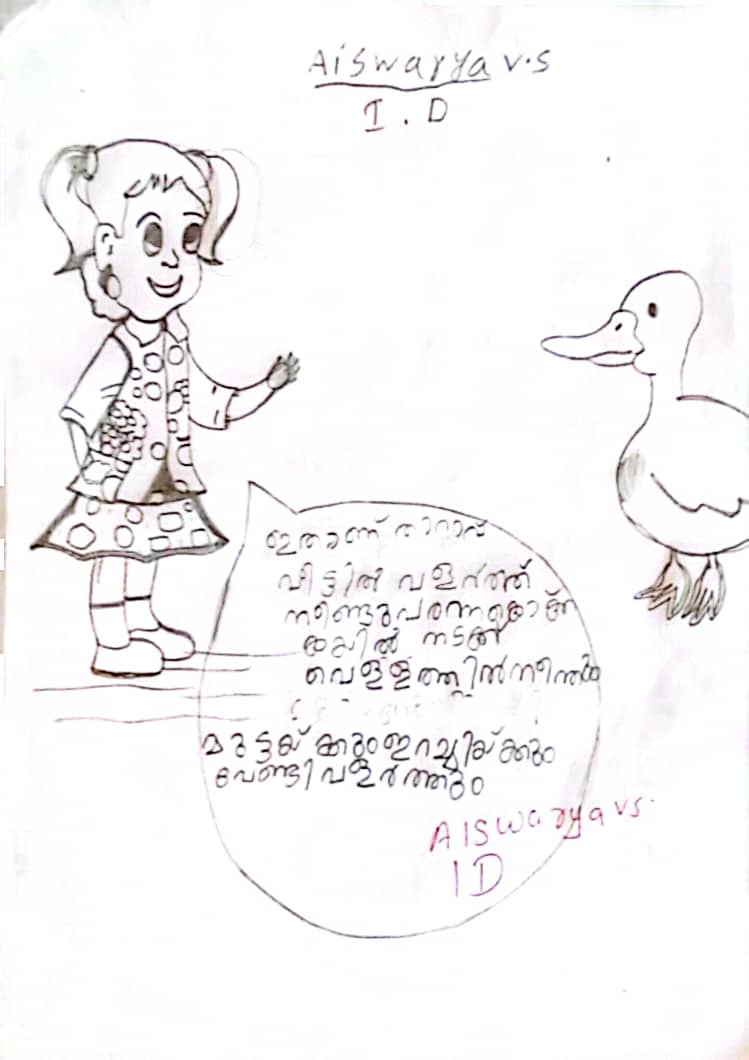 Aiswarya v.s
I. D
ഇതാണ് താറാവ്
വീട്ടിൽ വളർത്ത്
വെള്ളത്തിൽ നീന്തും
മുട്ടയ്ക്കും ഇറച്ചിയ്ക്കും
വേണ്ടി വളർത്തും
AISwarya vs.
ID